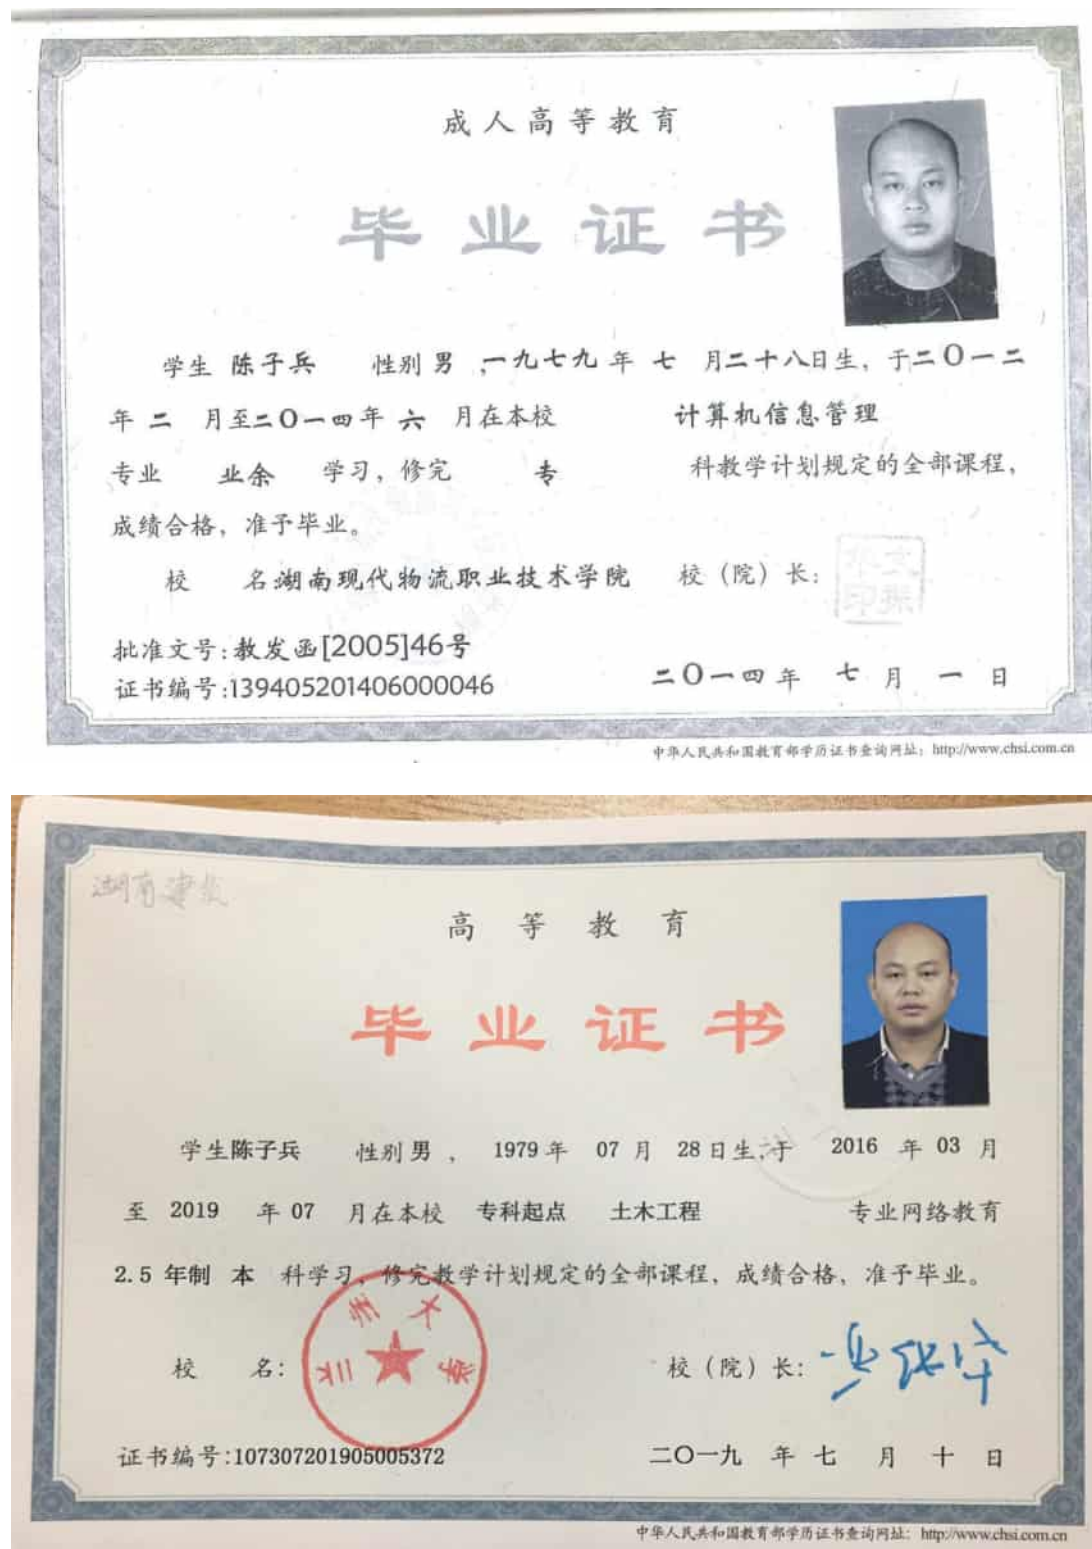 成人高等教育
毕业证书
学生 陈子兵 性别 男 ,一九七九 年 七 月二十八日生，于二〇一二
年 二 月至二〇一四年 六 月在本校 计算机信息管理
专业 业余 学习，修完 专 科教学计划规定的全部课程，
成绩合格，准予毕业。
校 名湖南现代物流职业技术学院 校（院）长：
批准文号:教发函[2005]46号
证书编号:139405201406000046 二〇一四 年 七 月 一 日
中华人民共和国教育部学历证书查询网址：http://www.chsi.com.cn
高等教育
毕业证书
学生陈子兵 性别 男 ， 1979 年 07 月 28 日生，于 2016 年 03 月
至 2019 年 07 月在本校 专科起点 土木工程 专业网络教育
2.5 年制 本 科学习，修完教学计划规定的全部课程，成绩合格，准予毕业。
兰州大学
校 名： 校（院）长：
证书编号:107307201905005372 二〇一九 年 七 月 十 日
中华人民共和国教育部学历证书查询网址：http://www.chsi.com.cn